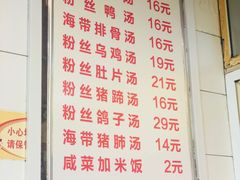 粉丝鸭汤 16元
海带排骨汤 16元
粉丝乌鸡汤 19元
粉丝肚片汤 21元
粉丝猪蹄汤 16元
粉丝鸽子汤 29元
海带猪肺汤 14元
咸菜加米饭 2元
小心
请保